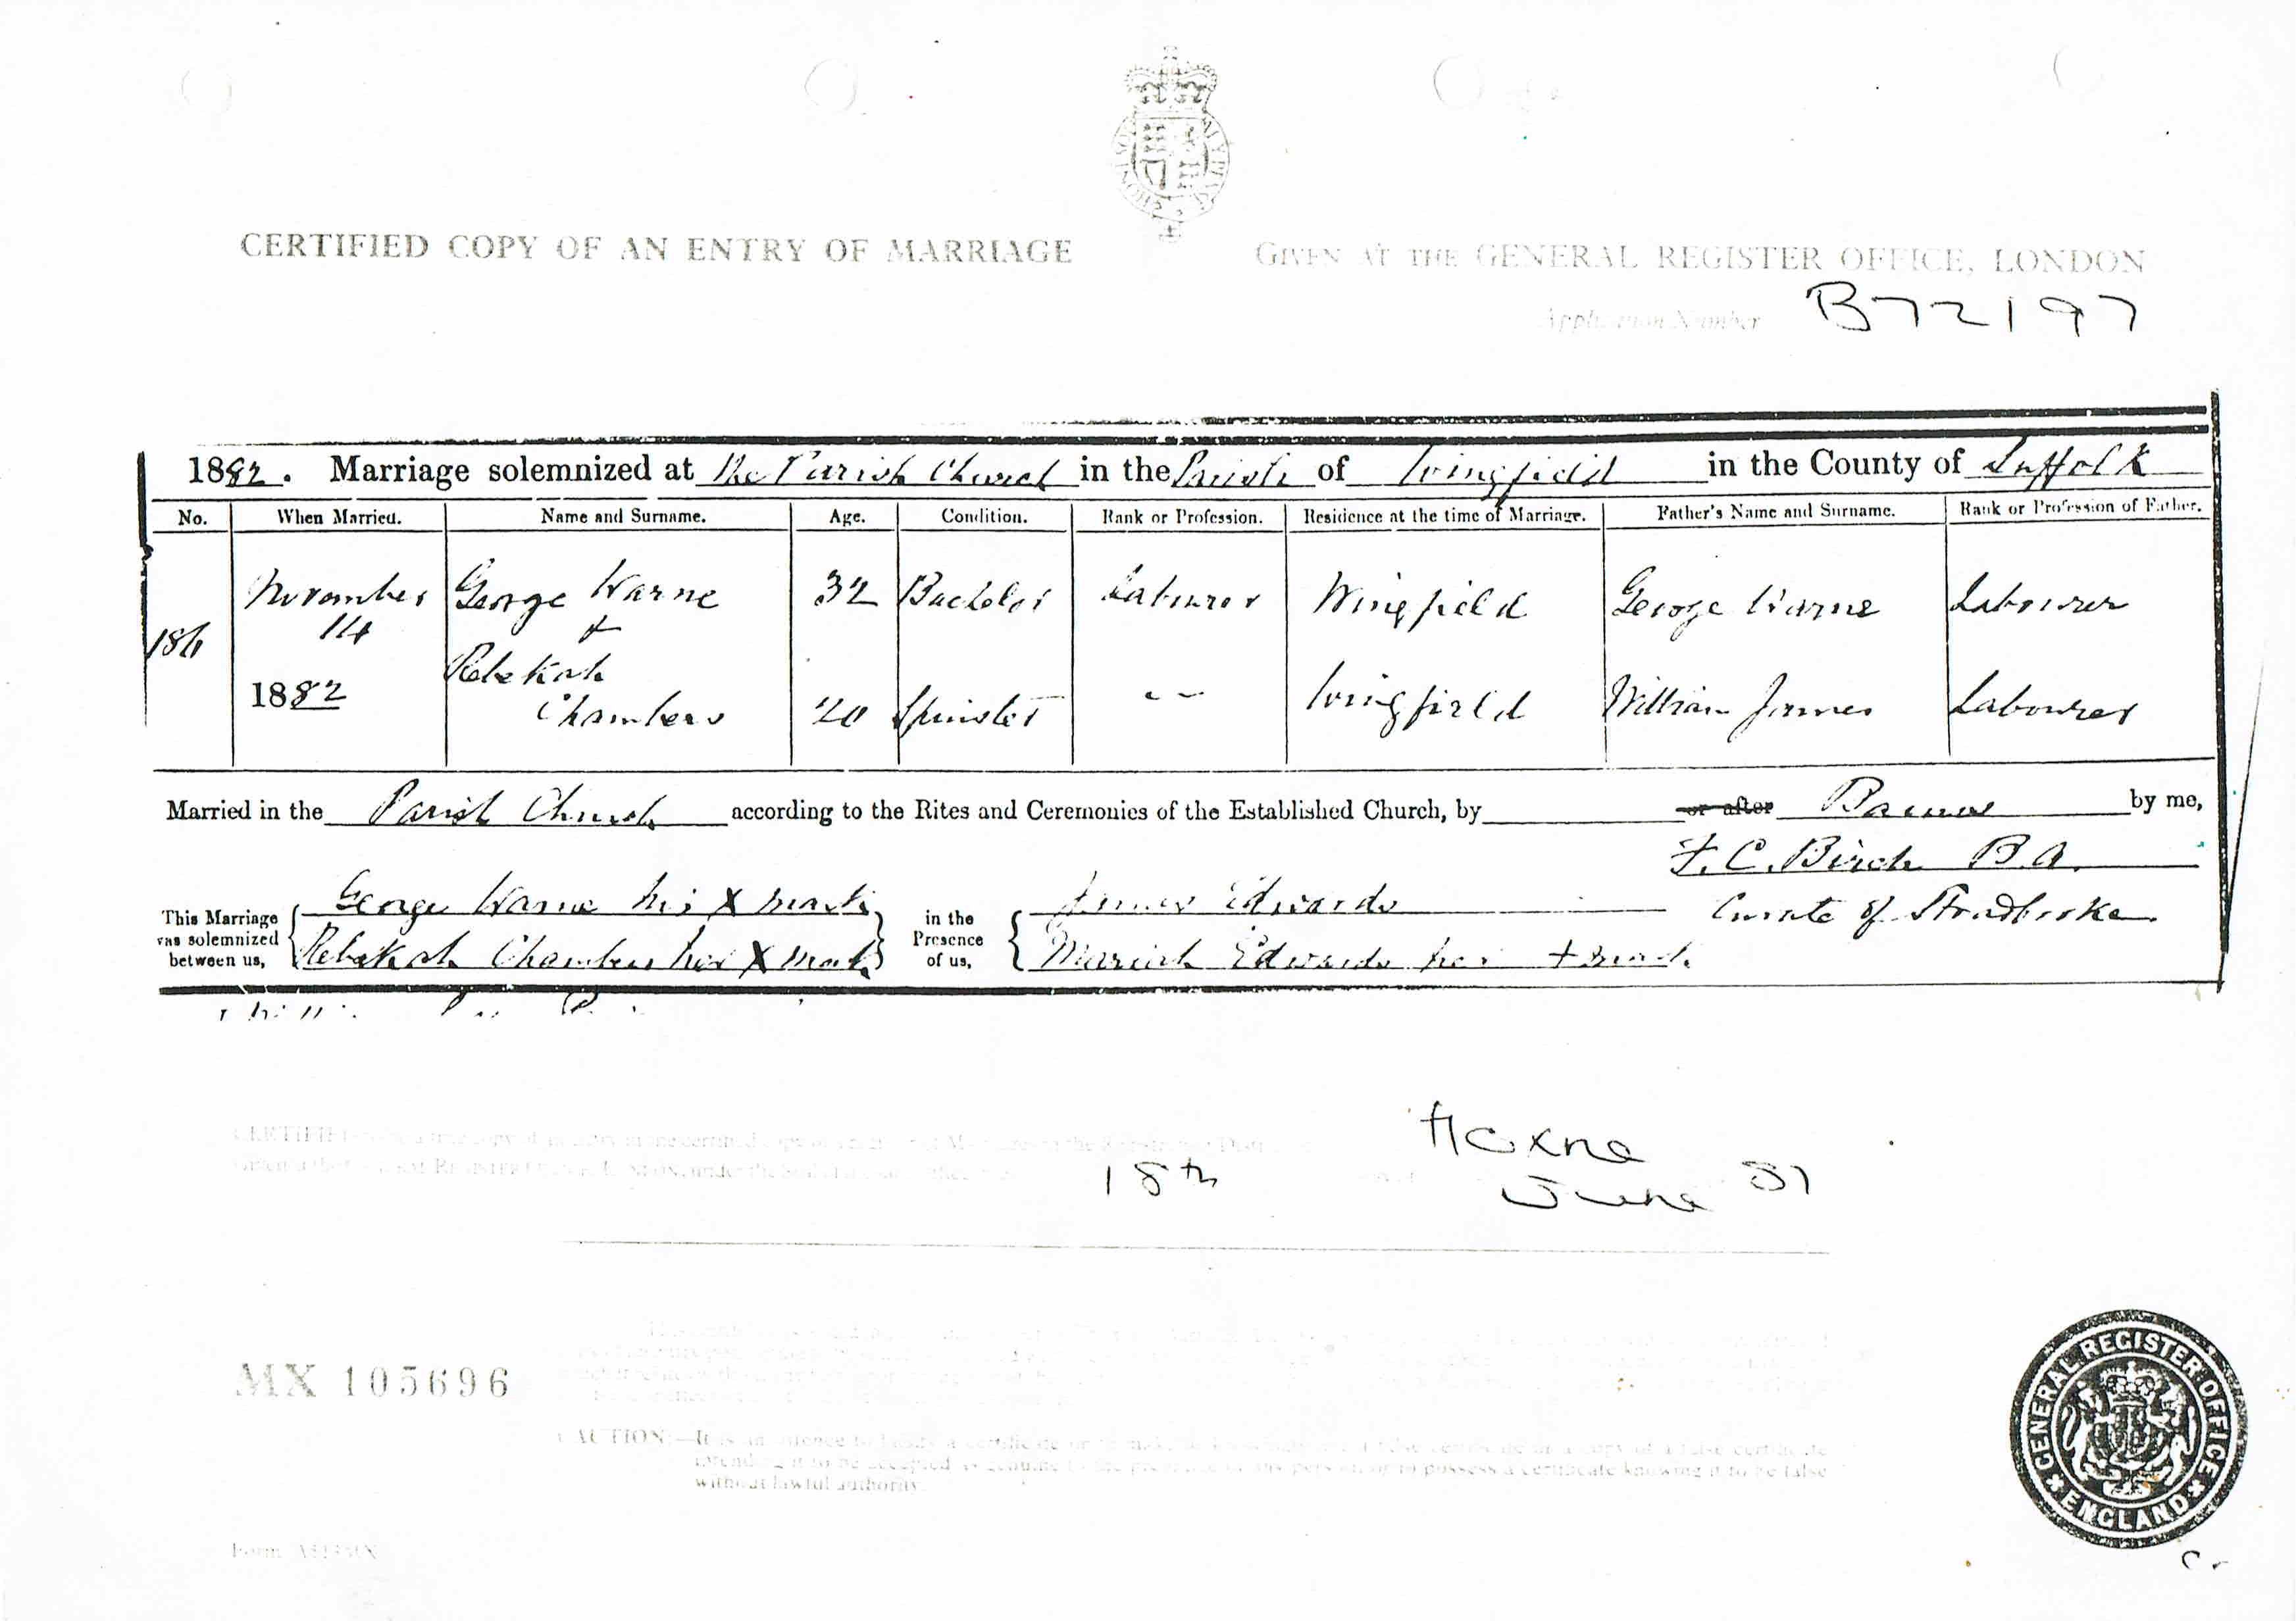 CERTIFIED COPY OF AN ENTRY OF MARRIAGE
GIVEN AT THE GENERAL REGISTER OFFICE, LONDON
Application Number B72197
1882. Marriage solemnized at the Parish Church in the Parish of Wingfield in the County of Suffolk
No. When Married. Name and Surname. Age. Condition. Rank or Profession. Residence at the time of Marriage. Father's Name and Surname. Rank or Profession of Father.
186 November 14 1882 George Warne 32 Bachelor Labourer Wingfield George Warne Labourer
&
Rebekah Chambers 20 Spinster -- Wingfield William James Labourer
Married in the Parish Church according to the Rites and Ceremonies of the Established Church, by or after Banns by me,
F. C. Birch B.A.
Curate of Stradbroke
This Marriage was solemnized between us,
George Warne his X mark
Rebekah Chambers her X mark
in the Presence of us,
James Edwards
Mariah Edwards her + mark
Hoxne
18th June 87
MX 105696
CAUTION:—It is an offence to falsify a certificate or to make or knowingly use a false certificate or a copy of a false certificate
intending it to be accepted as genuine to the prejudice of any person or to possess a certificate knowing it to be false
without lawful authority.
Form
GENERAL REGISTER OFFICE
ENGLAND